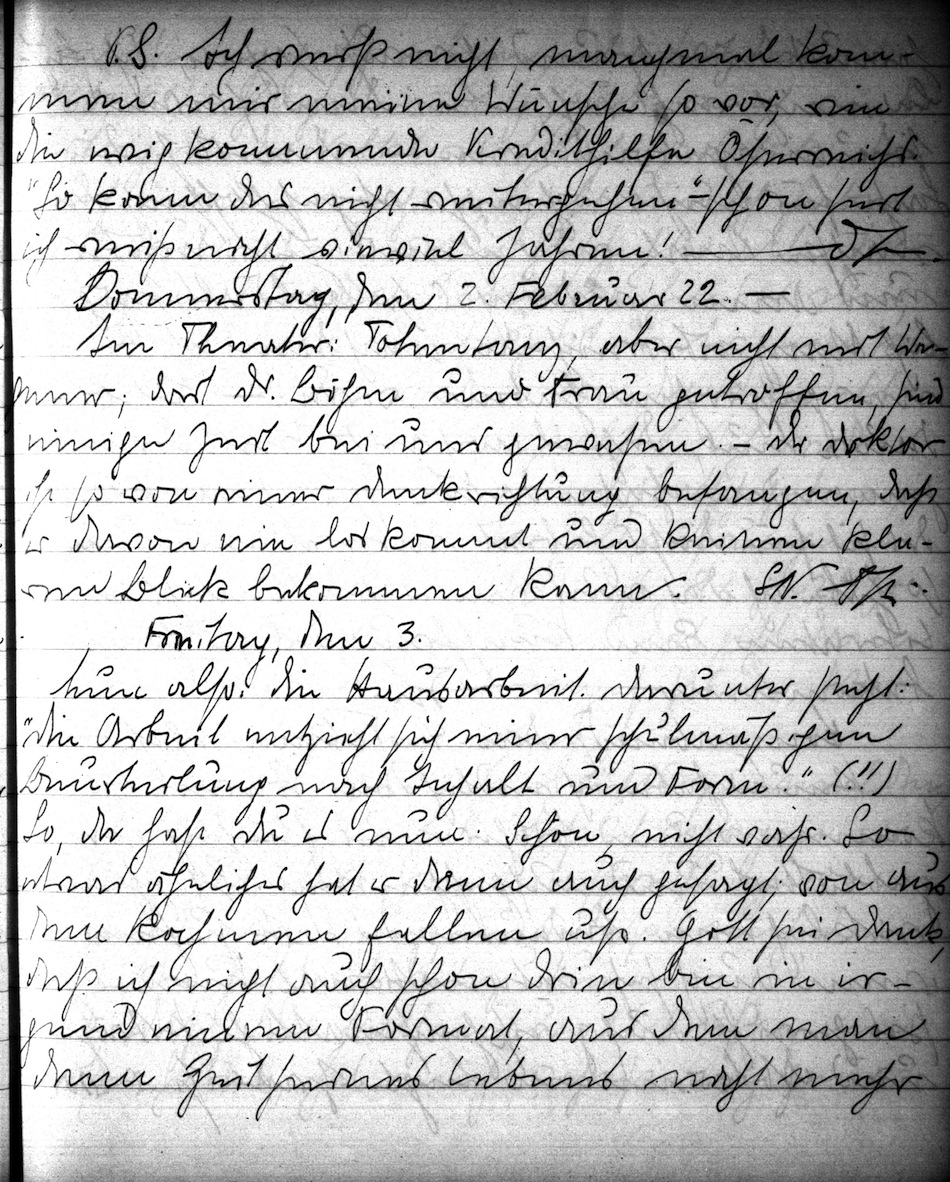 P.S. Ich weiß nicht, manchmal kom-
men mir meine Wünsche so vor, wie
die ewig kommende Kredithilfe Österreichs.
"So kann das nicht weitergehen" - schon seit
ich weiß nicht wieviel Jahren! —
Donnerstag, den 2. Februar 22. —
Im Theater: Totentanz, aber nicht mit We-
gener; dort Dr. Böhm und Frau getroffen, sind
einige Zeit bei uns gewesen. - Der Doktor
ist so von einer Denkrichtung befangen, daß
er davon nie los kommt und keinen kla-
ren Blick bekommen kann.
Freitag, den 3.
Nun also: die Hausarbeit. Darunter steht:
"die Arbeit entzieht sich einer schulmäßigen
Beurteilung nach Inhalt und Form." (!!)
So, da hast du es nun. Schön, nicht wahr. So
etwas ähnliches hat er denn auch gesagt: von aus
dem Rahmen fallen usw. Gott sei Dank,
daß ich nicht auch schon drin bin in ir-
gend einem Format, aus dem man
denn Zeit seines Lebens nicht mehr